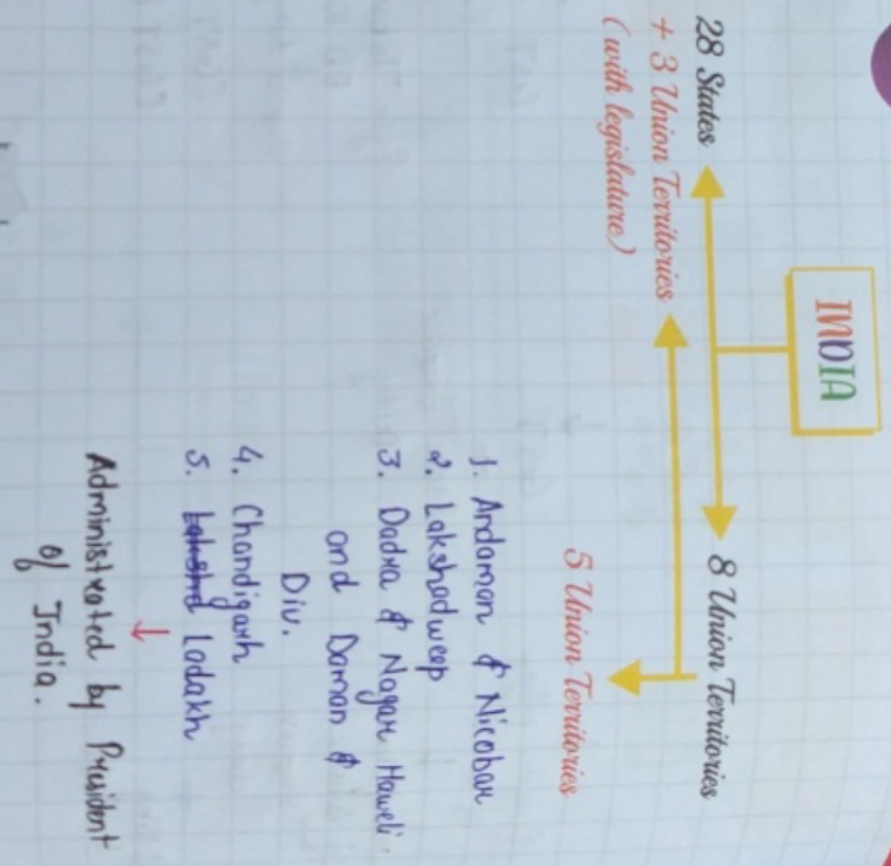 INDIA
28 States
8 Union Territories
+ 3 Union Territories
(with legislature)
5 Union Territories
1. Andaman & Nicobar
2. Lakshadweep
3. Dadra & Nagar Haweli
and Daman &
Div.
4. Chandigarh
5. Ladakh
Administrated by President
of India.